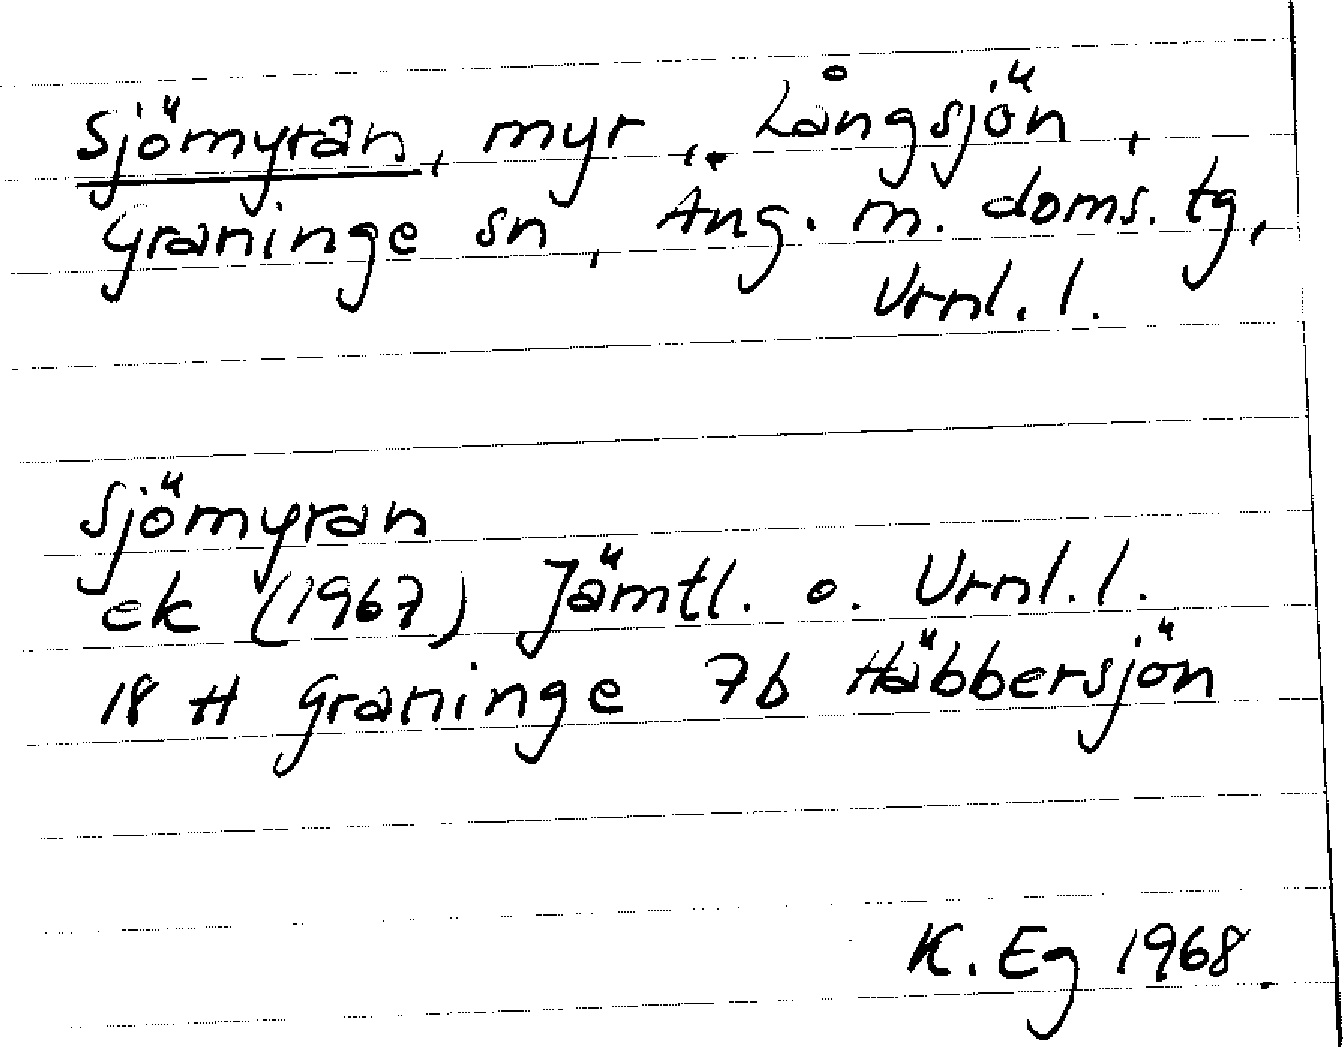 Sjömyran, myr, Långsjön,
Graninge sn, Äng. m. doms. tg,
Vrnl. l.
Sjömyran
ek (1967) Jämtl. o. Vrnl. l.
18 H Graninge 7b Häbbersjön
K. Eg 1968.